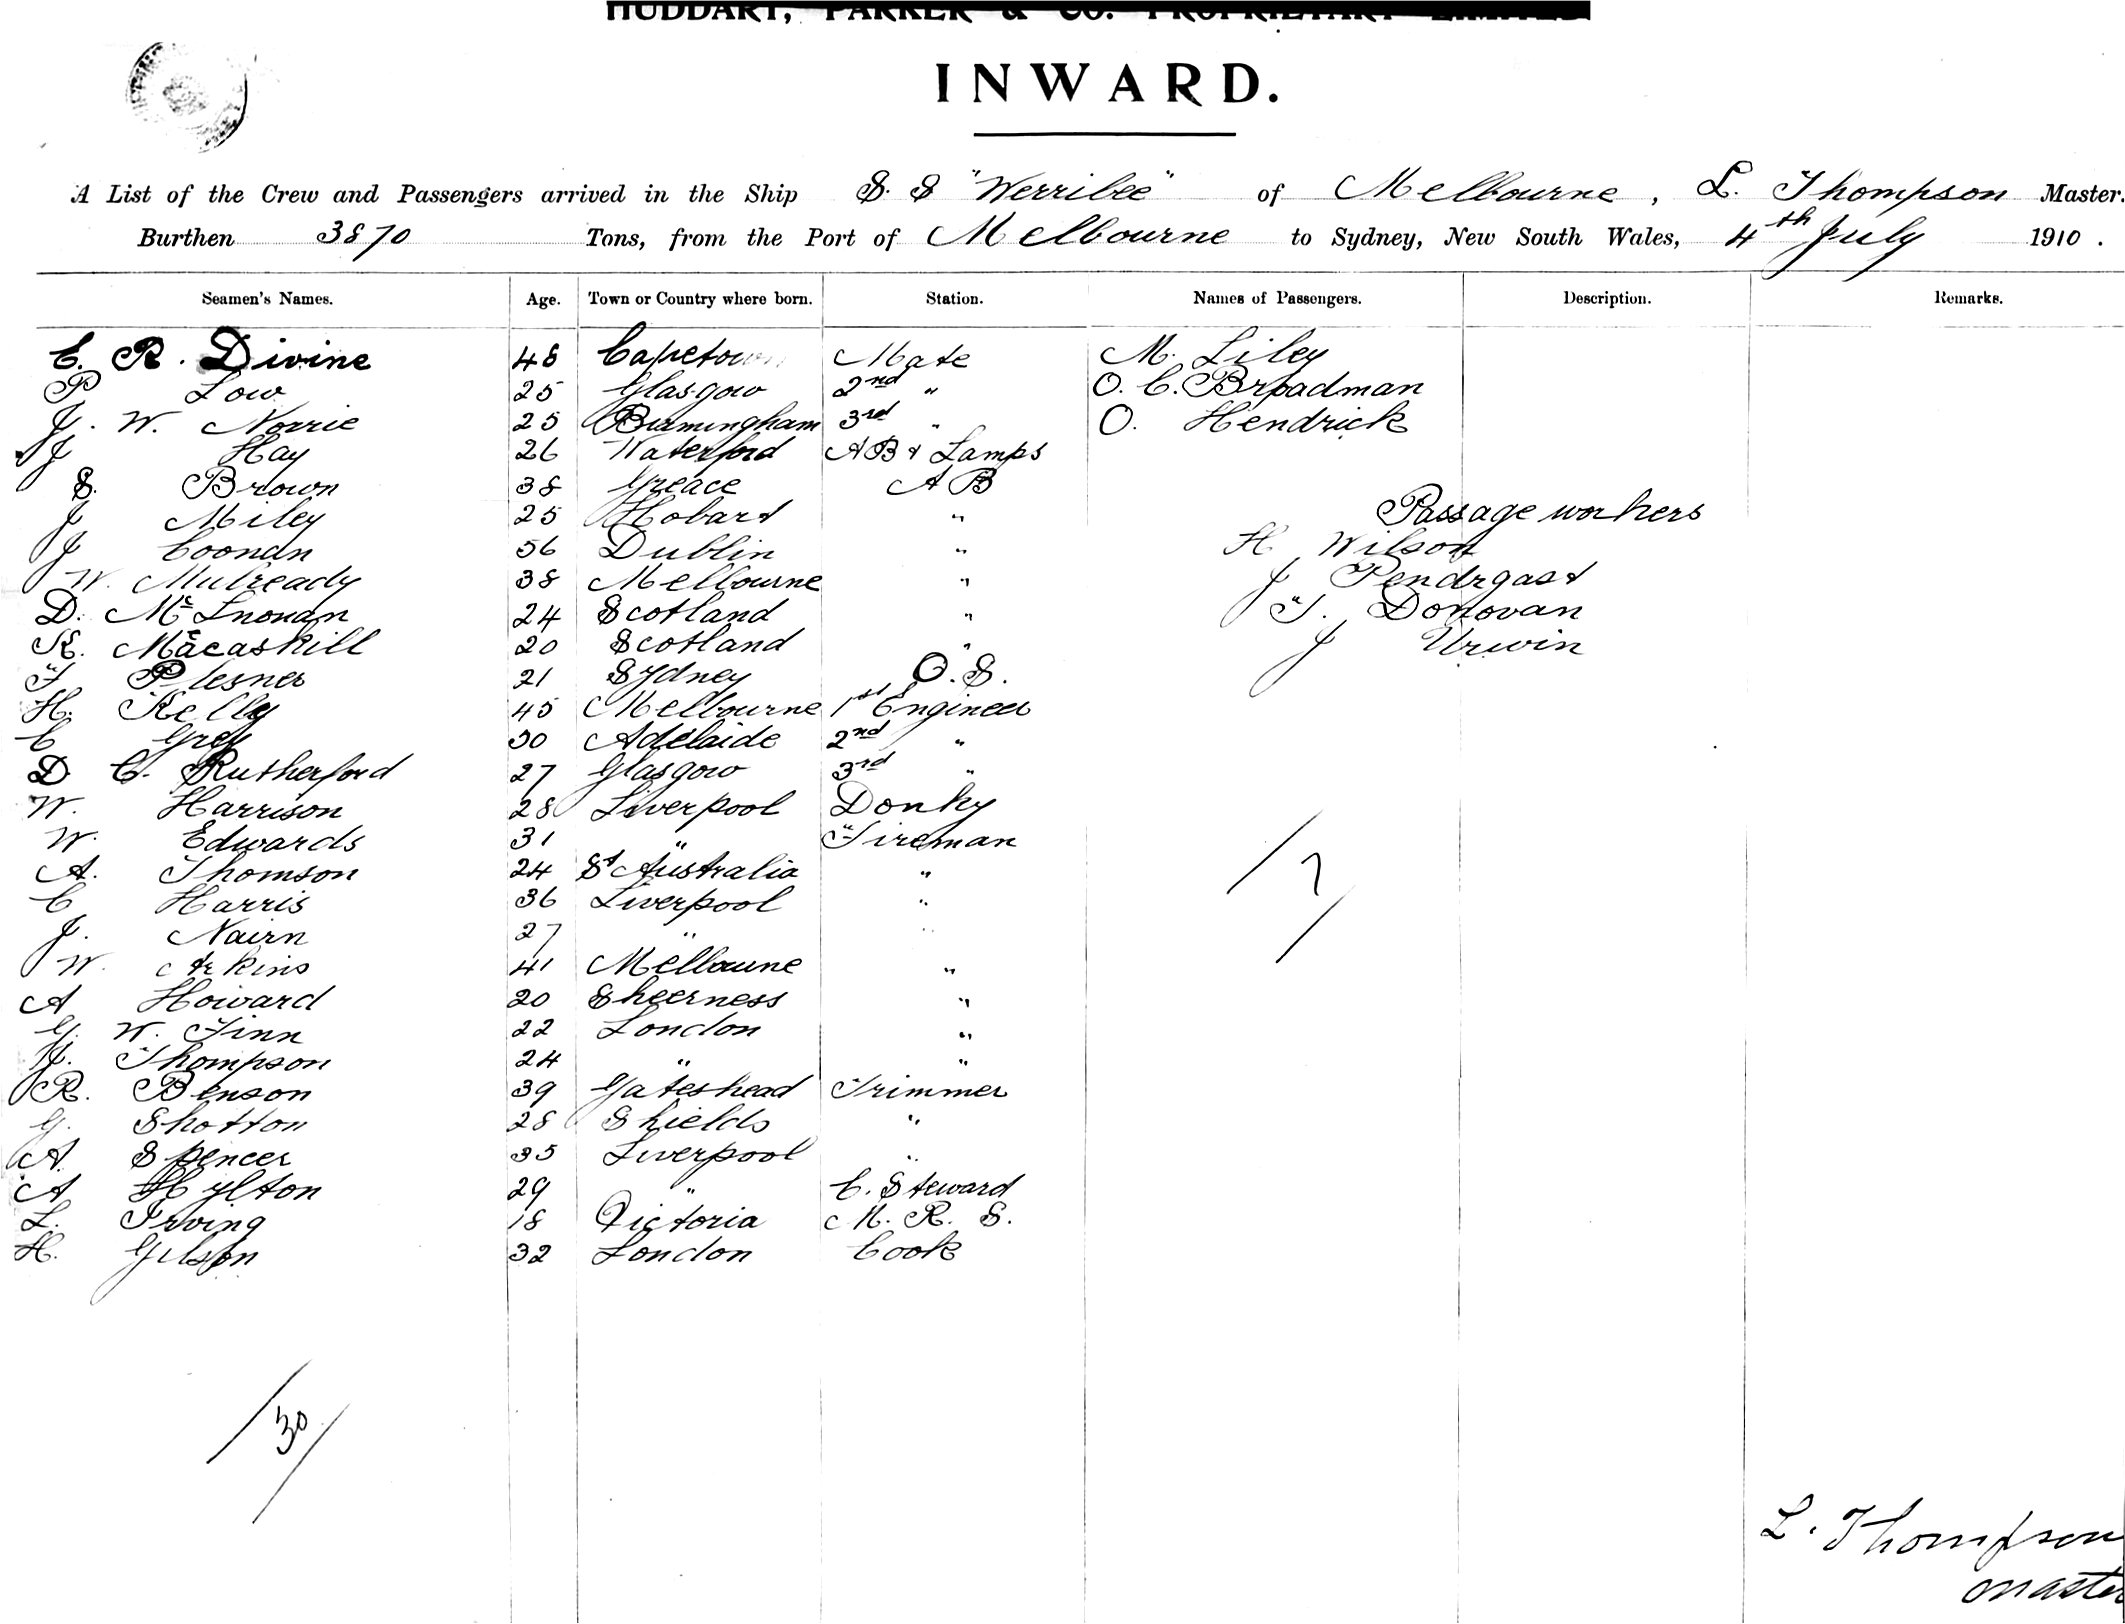 HUDDART, PARKER & CO. PROPRIETARY LIMITED
INWARD.
A List of the Crew and Passengers arrived in the Ship S. S "Werribee" of Melbourne, L. Thompson Master.
Burthen 3870 Tons, from the Port of Melbourne to Sydney, New South Wales, 4th July 1910.
Seamen's Names. Age. Town or Country where born. Station. Names of Passengers. Description. Remarks.
C. R. Divine 48 Capetown Mate M. Liley
P Low 25 Glasgow 2nd " O. C. Broadman
J. W. Norrie 25 Burmingham 3rd " O. Hendrick
J Hay 26 Waterford AB & Lamps
S. Brown 38 Greace A B
J Miley 25 Hobart " Passage workers
J Coonan 56 Dublin " H Wilson
W. Mulready 38 Melbourne " J Pendrgast
D. 24 Scotland " T. Donovan
K. Macaskill 20 Scotland " J Urwin
F Plesner 21 Sydney O. S.
H. Kelly 45 Melbourne 1st Engineer
C Grey 30 Adelaide 2nd "
D C. Rutherford 27 Glasgow 3rd "
W. Harrison 28 Liverpool Donky
W. Edwards 31 " Fireman
A. Thomson 24 St Australia "
C Harris 36 Liverpool "
J. Nairn 27 " "
W. Arkins 41 Melbourne "
A Howard 20 Sheerness "
G. W. Finn 22 London "
J. Thompson 24 " "
R. Benson 39 Gateshead Trimmer
G. Shotton 28 Shields "
A. Spencer 35 Liverpool "
A Hylton 29 " C. Steward
L. Irving 18 Victoria M. R. S.
H. Gilson 32 London Cook
/7/
/30/
L. Thompson
Master